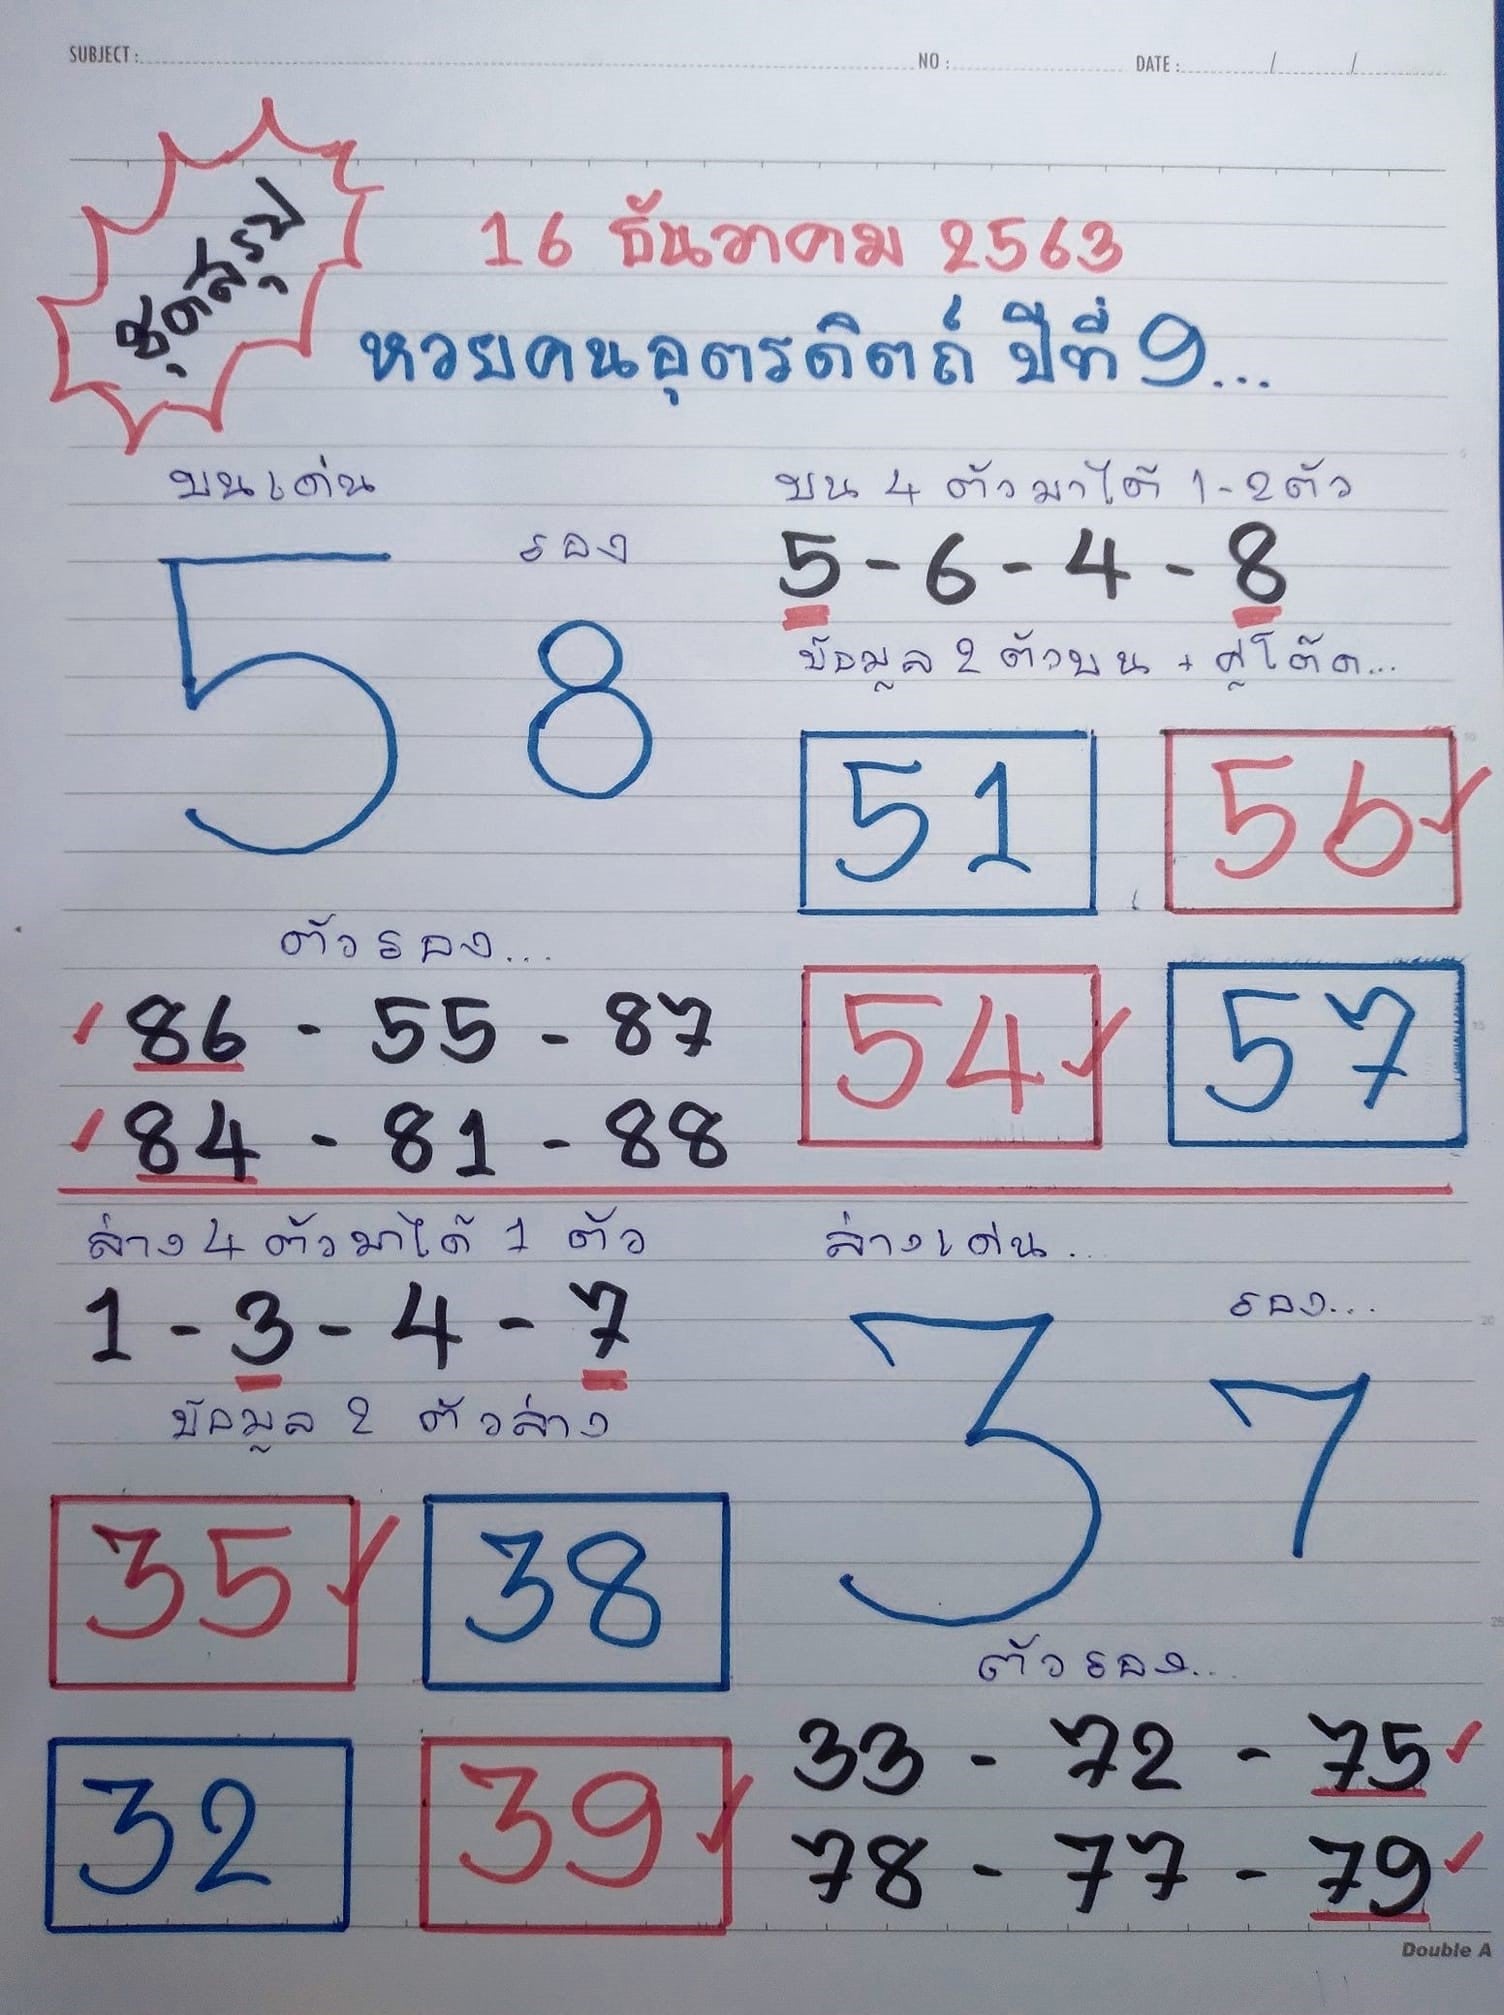 SUBJECT : NO : DATE : / /
ชุดสรุป
16 ธันวาคม 2563
หวยคนอุตรดิตถ์ ปีที่ 9...
บนเด่น
รอง
5 8
บน 4 ตัวมาได้ 1-2 ตัว
5 - 6 - 4 - 8
ข้อมูล 2 ตัวบน + คู่โต๊ด...
51 56
54 57
ตัวรอง...
86 - 55 - 87
84 - 81 - 88
ล่าง 4 ตัวมาได้ 1 ตัว
1 - 3 - 4 - 7
ข้อมูล 2 ตัวล่าง
35 38
32 39
ล่างเด่น...
รอง...
3 7
ตัวรอง...
33 - 72 - 75
78 - 77 - 79
Double A